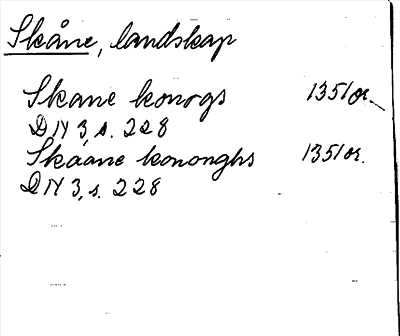 Skåne, landskap
Skane konogs 1351 or.
DN 3, s. 228
Skaane kononghs 1351 or.
DN 3, s. 228